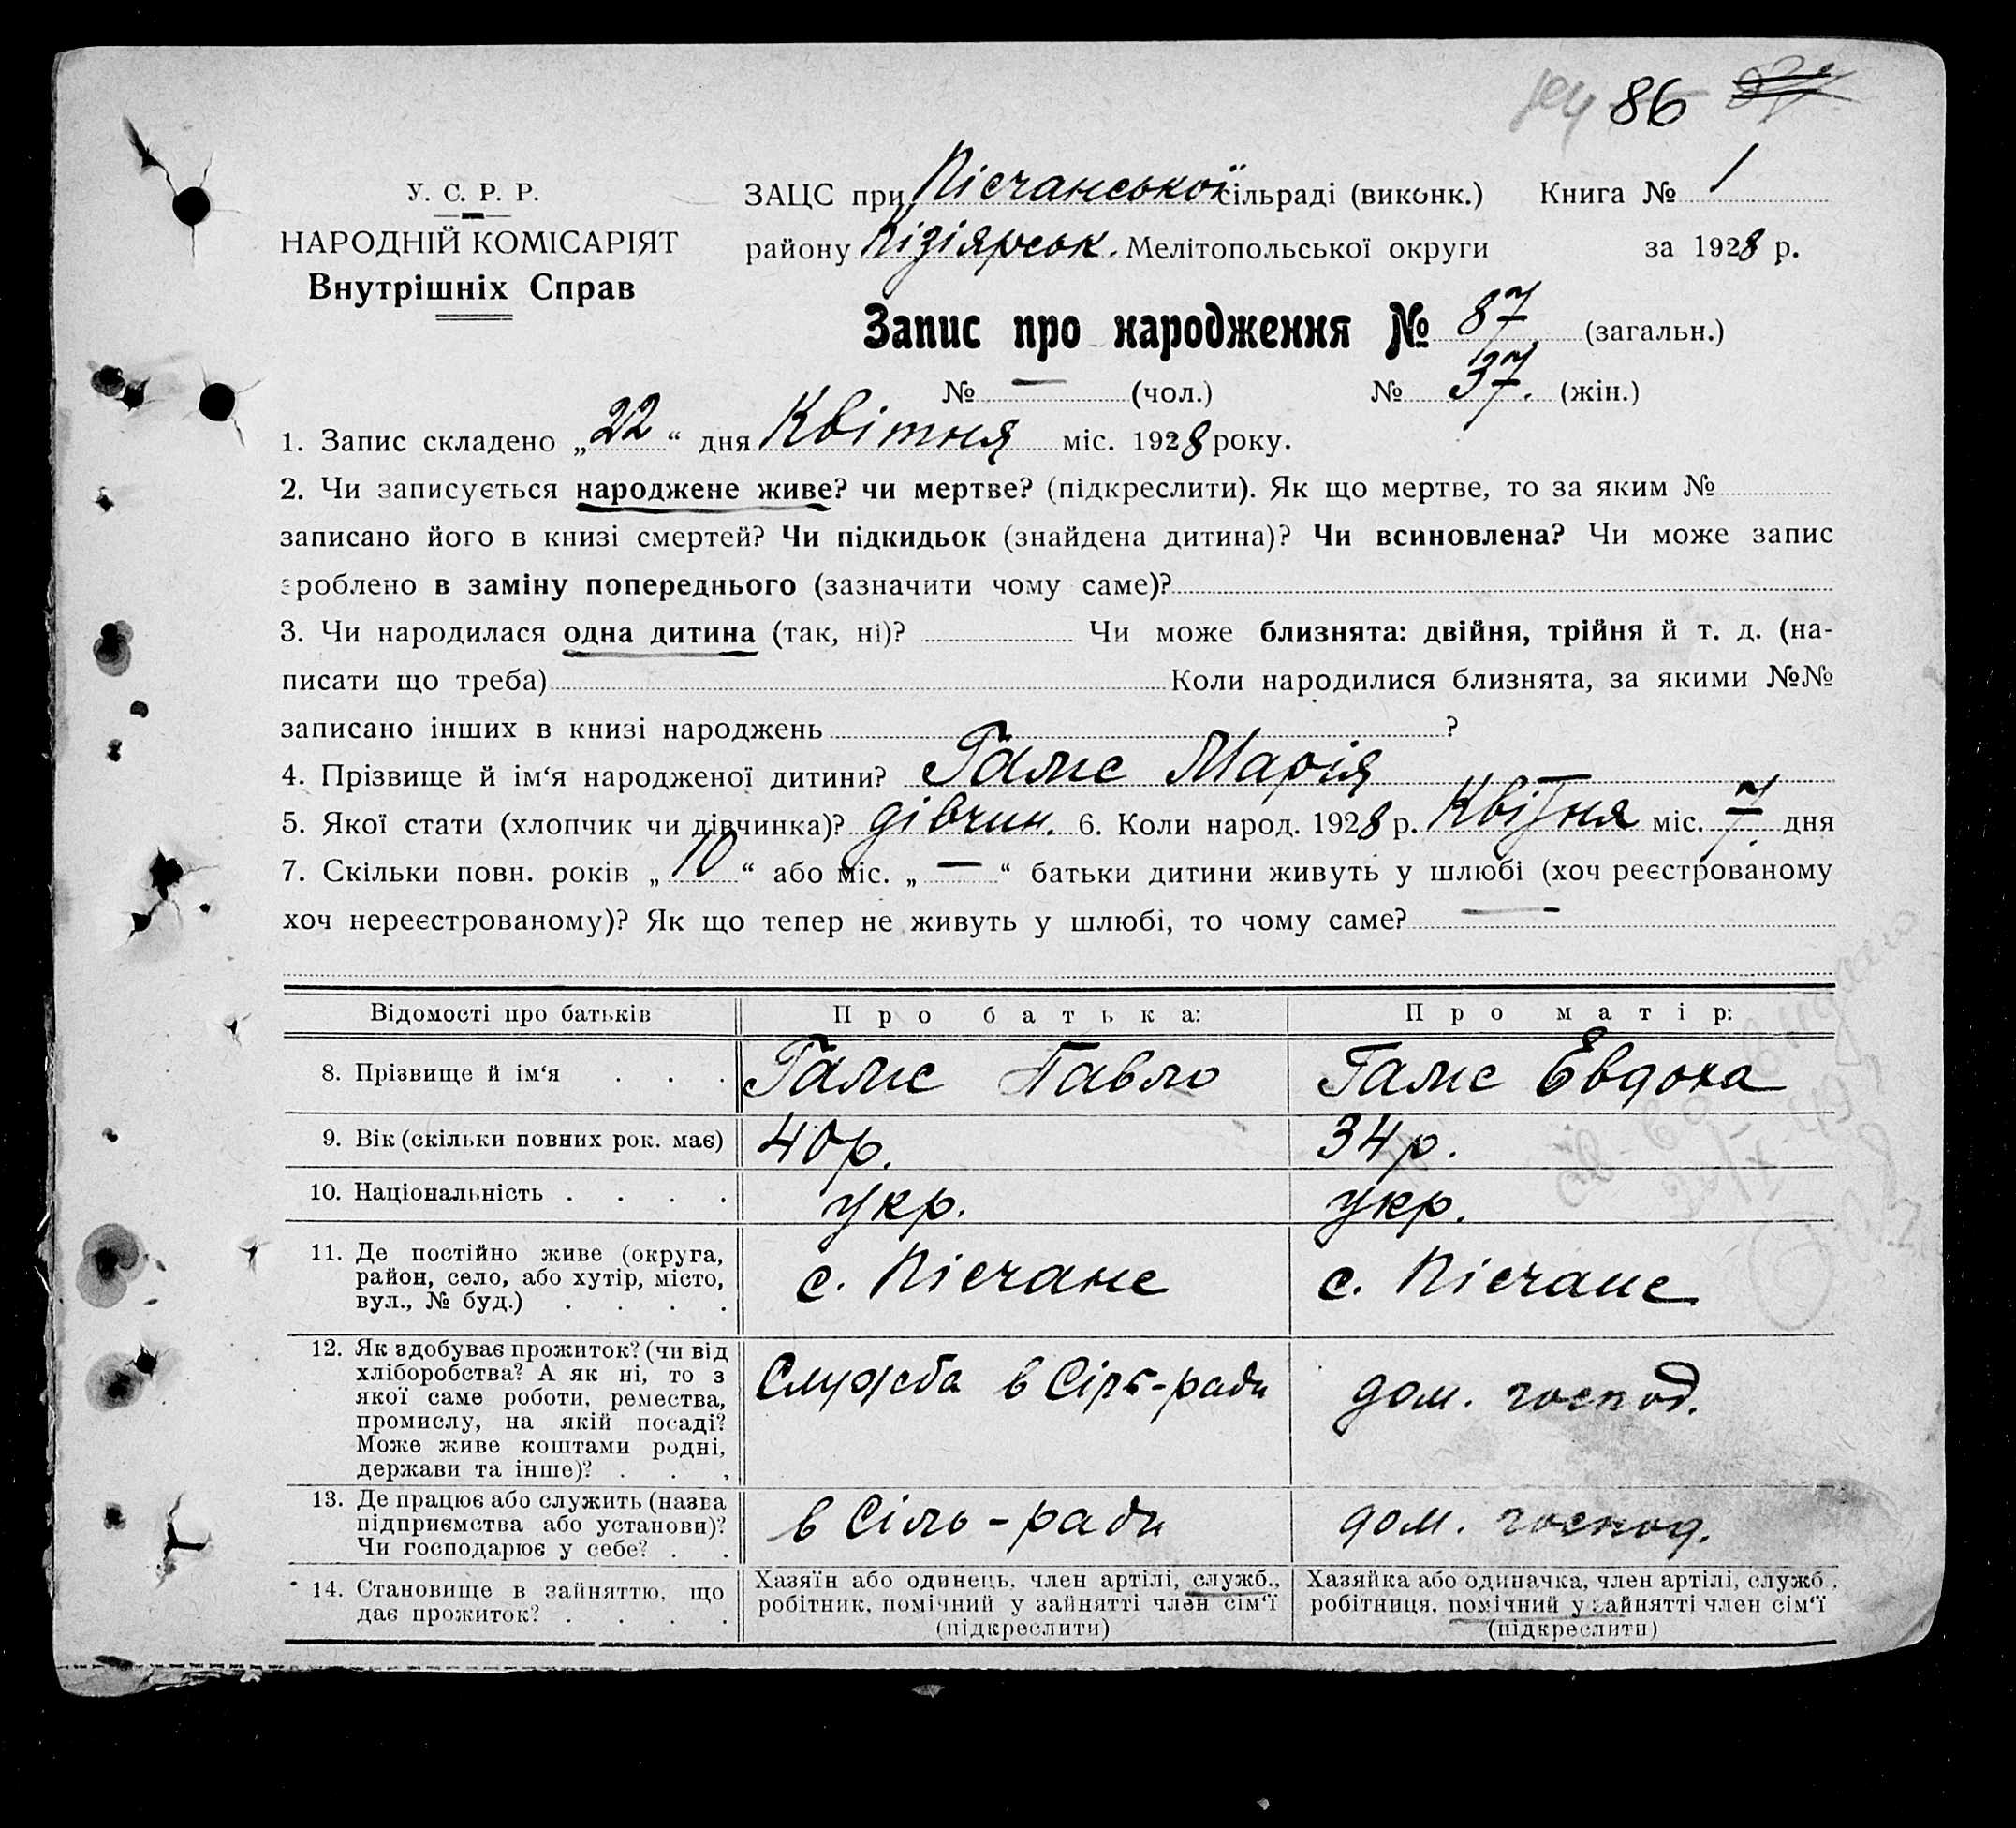 86
У. С. Р. Р.
НАРОДНІЙ КОМІСАРІЯТ
Внутрішніх Справ
ЗАЦС при Пісчанської сільраді (виконк.) Книга № 1
району Кізіярськ. Мелітопольської округи за 1928 р.
Запис про народження № 87 (загальн.)
№ — (чол.) № 37. (жін.)
1. Запис складено „22“ дня Квітня міс. 1928 року.
2. Чи записується народжене живе? чи мертве? (підкреслити). Як що мертве, то за яким №
записано його в книзі смертей? Чи підкидьок (знайдена дитина)? Чи всиновлена? Чи може запис
зроблено в заміну попереднього (зазначити чому саме)?
3. Чи народилася одна дитина (так, ні)? Чи може близнята: двійня, трійня й т. д. (на-
писати що треба) Коли народилися близнята, за якими №№
записано інших в книзі народжень ?
4. Прізвище й ім‘я народженої дитини? Галис Марія
5. Якої стати (хлопчик чи дівчинка)? дівчин. 6. Коли народ. 1928 р. Квітня міс. 7 дня
7. Скільки повн. років „10“ або міс. „—“ батьки дитини живуть у шлюбі (хоч реєстрованому
хоч нереєстрованому)? Як що тепер не живуть у шлюбі, то чому саме? —
Відомості про батьків Про батька: Про матір:
8. Прізвище й ім‘я . . . Галис Павло Галис Евдоха
9. Вік (скільки повних рок. має) 40р. 34р.
10. Національність . . . . укр. укр.
11. Де постійно живе (округа,
район, село, або хутір, місто,
вул., № буд.) . . . .
с. Пісчане с. Пісчане
12. Як здобуває прожиток? (чи від
хліборобства? А як ні, то з
якої саме роботи, ремества,
промислу, на якій посаді?
Може живе коштами родні,
держави та інше)? . . .
Служба в Сіль-ради дом. господ.
13. Де працює або служить (назва
підприємства або установи)?
Чи господарює у себе? . .
в Сіль-ради дом. господ.
14. Становище в зайняттю, що
дає прожиток? . . . .
Хазяїн або одинець, член артілі, служб.,
робітник, помічний у зайнятті член сім‘ї
(підкреслити)
Хазяйка або одиначка, член артілі, служб.,
робітниця, помічний у зайнятті член сім‘ї
(підкреслити)